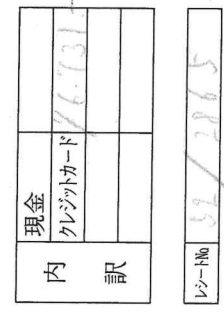 内訳
現金
クレジットカード ¥6,731.-
レシートNo 32/2865